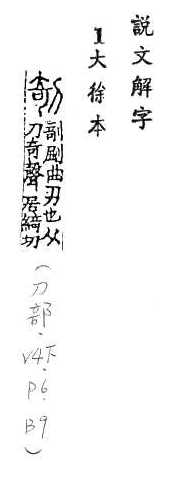 說文解字
1大徐本
剞
剞曲刀也从
刀奇聲居綺切
(刀部·V4下·P6·B9)